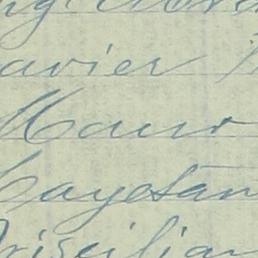 avier
Mauro
Cayetan
Priscilian